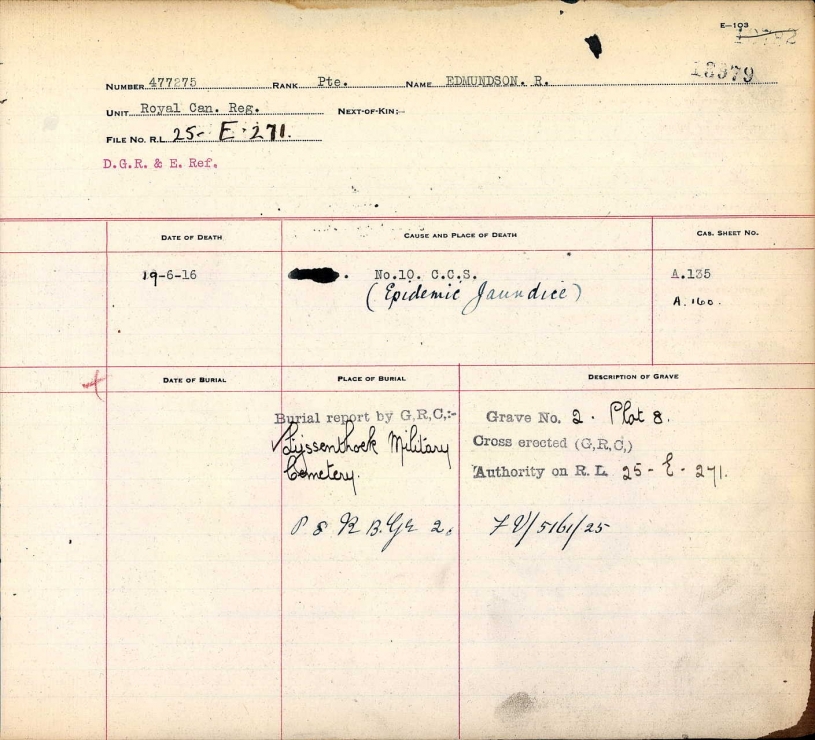 E—103
18979
NUMBER 477275 RANK Pte. NAME EDMUNDSON. R.
UNIT Royal Can. Reg. NEXT-OF-KIN:—
FILE NO. R.L. 25- E-271.
D.G.R. & E. Ref.
DATE OF DEATH CAUSE AND PLACE OF DEATH CAS. SHEET NO.
19-6-16 No.10. C.C.S. A.135
(Epidemic Jaundice) A.160.
DATE OF BURIAL PLACE OF BURIAL DESCRIPTION OF GRAVE
Burial report by G,R,C,:- Grave No. 2. Plot 8.
Lijssenthoek Military Cross erected (G,R,C,)
Cemetery. Authority on R. L. 25-E-271.
P 8 R B. Gr 2. FV/5161/25